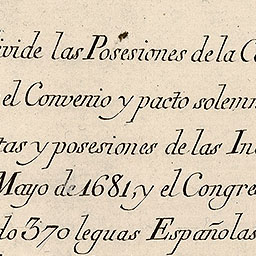 ivide las Posesiones de la C
el Convenio y pacto solemn
tas y posesiones de las In
Mayo de 1681, y el Congre
do 370 leguas Españolas